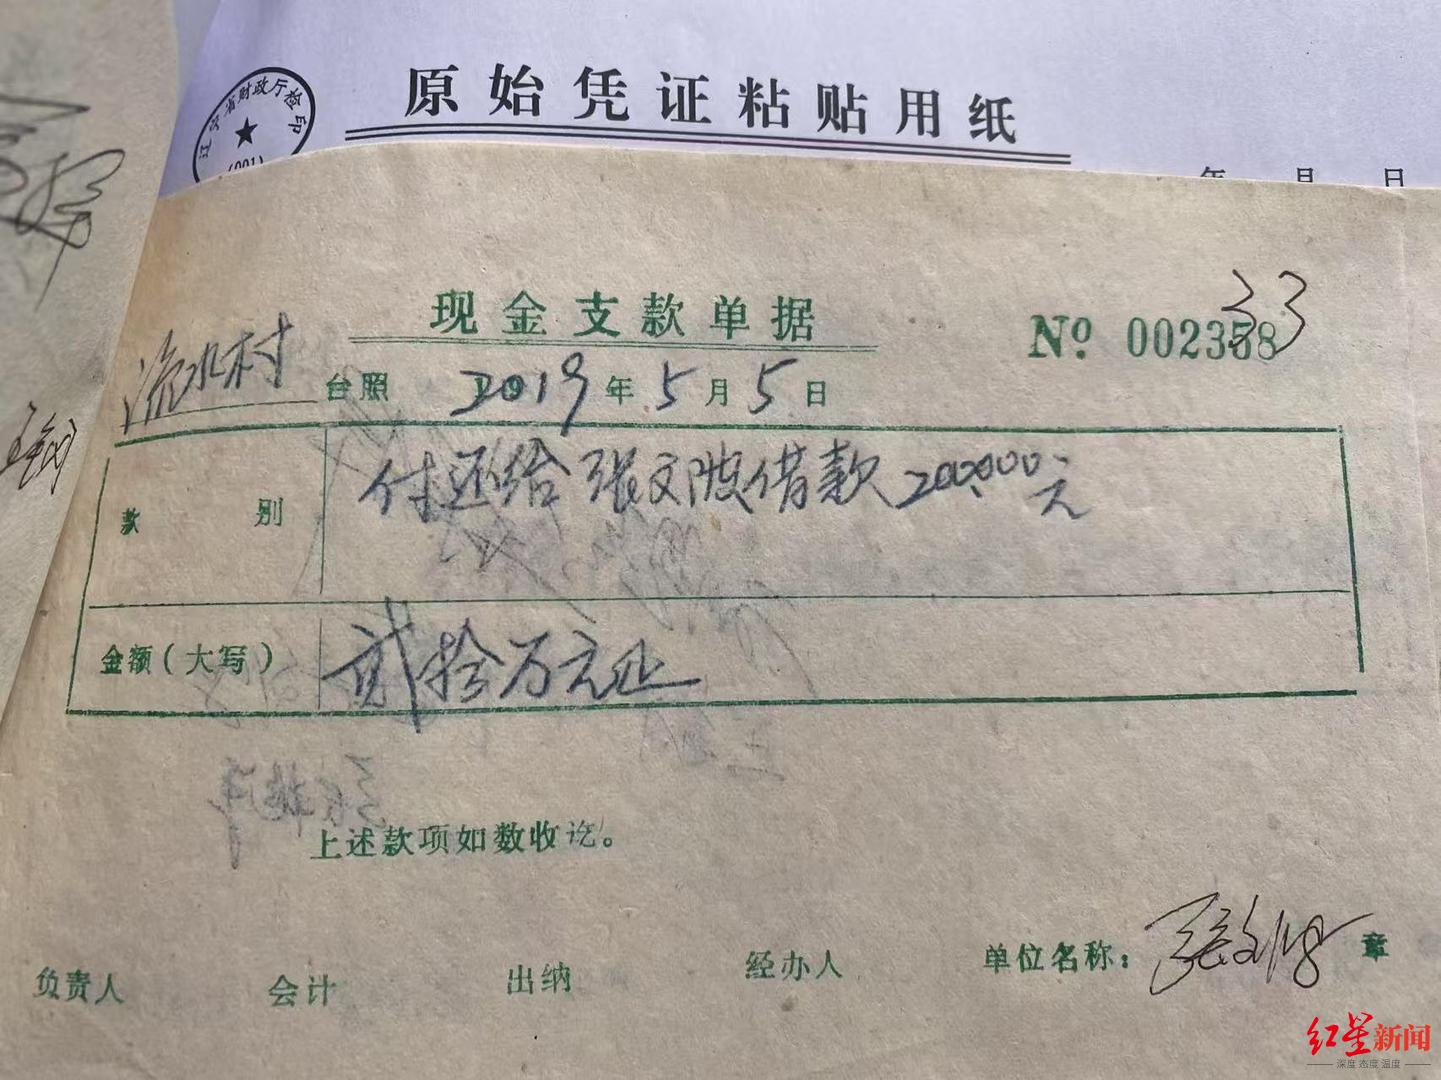 原始凭证粘贴用纸
辽宁省财政厅检印
(001)
年 月 日
33
现金支款单据
№ 002358
流水村 台照 2019年5月5日
款 别 付还给张文波借款200000元
金额(大写) 贰拾万元正
上述款项如数收讫。
负责人 会计 出纳 经办人 单位名称: 张文波 章
红星新闻
深度 态度 温度